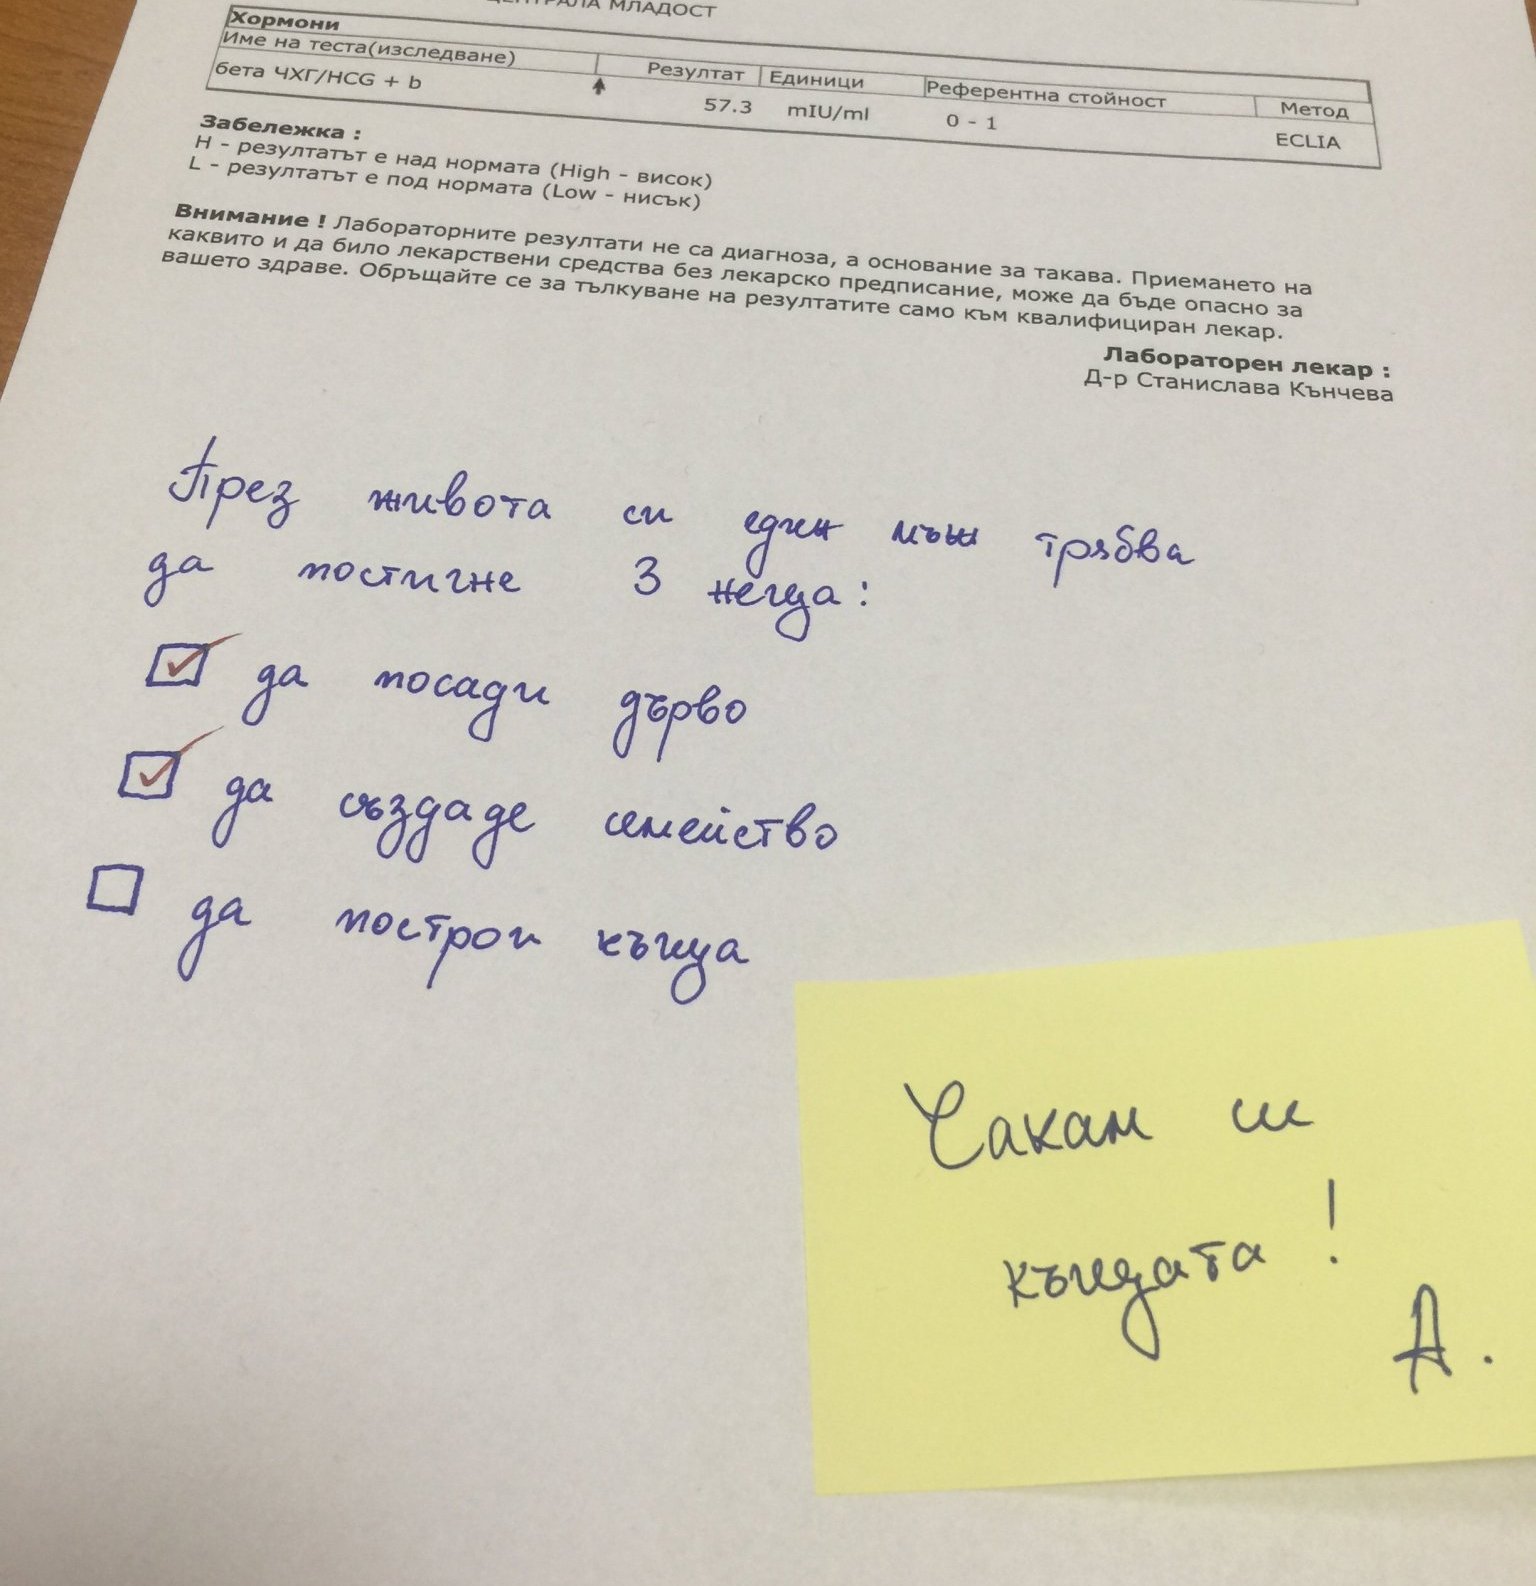 ЦЕНТРАЛА МЛАДОСТ
Хормони
Име на теста(изследване) Резултат Единици Референтна стойност Метод
бета ЧХГ/HCG + b 57.3 mIU/ml 0 - 1 ECLIA
Забележка :
H - резултатът е над нормата (High - висок)
L - резултатът е под нормата (Low - нисък)
Внимание ! Лабораторните резултати не са диагноза, а основание за такава. Приемането на
каквито и да било лекарствени средства без лекарско предписание, може да бъде опасно за
вашето здраве. Обръщайте се за тълкуване на резултатите само към квалифициран лекар.
Лабораторен лекар :
Д-р Станислава Кънчева
През живота си един мъж трябва
да постигне 3 неща:
да посади дърво
да създаде семейство
да построи къща
Чакам си
къщата !
А.